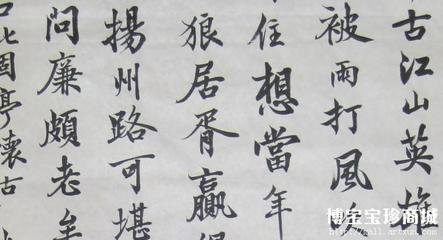 古江山英雄
被雨打風
住想當年
狼居胥贏得
揚州路可堪
問廉頗老矣
口北固亭懷古
博宝宝珍商城